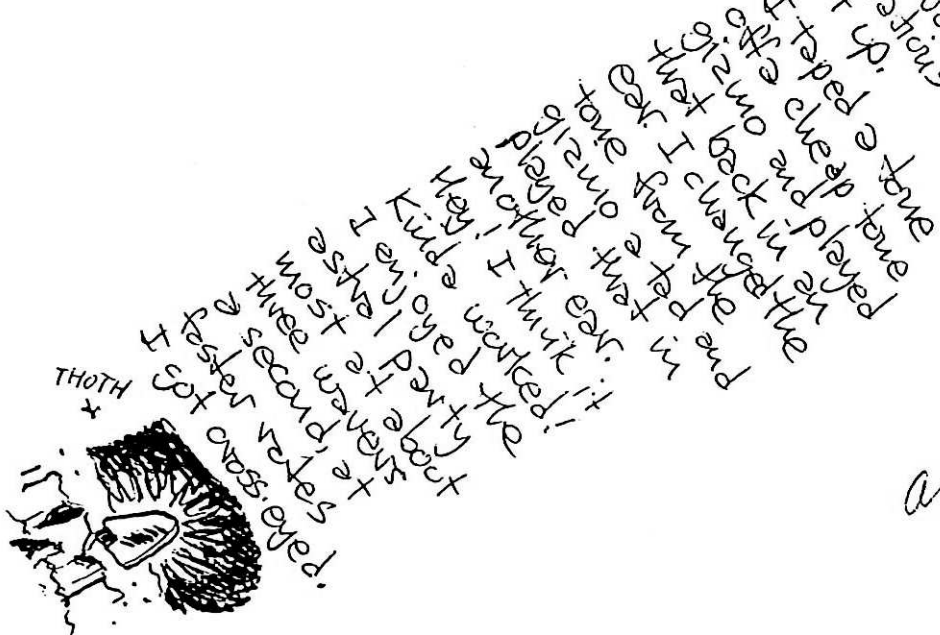 up.
I taped a tone
off a cheap tone
gizmo and played
that back in an
ear. I changed the
tone from the
gizmo a tad and
played that in
another ear.
Hey! I think it
Kinda worked!
I enjoyed the
astral party
most at about
three wavers
a second, at
faster rates
I got cross-eyed.
THOTH